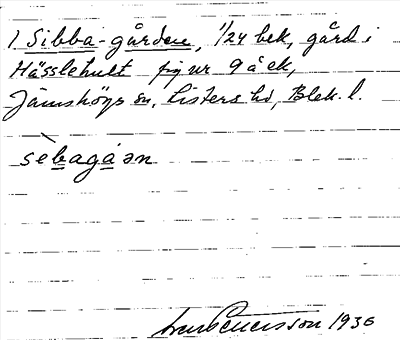 1. Sibba-gården, 1/24 hek, gård i
Hässlehult fig nr 9 å ek,
Jämshögs sn, Listers hd, Blek. l.
sèbagåən
1936